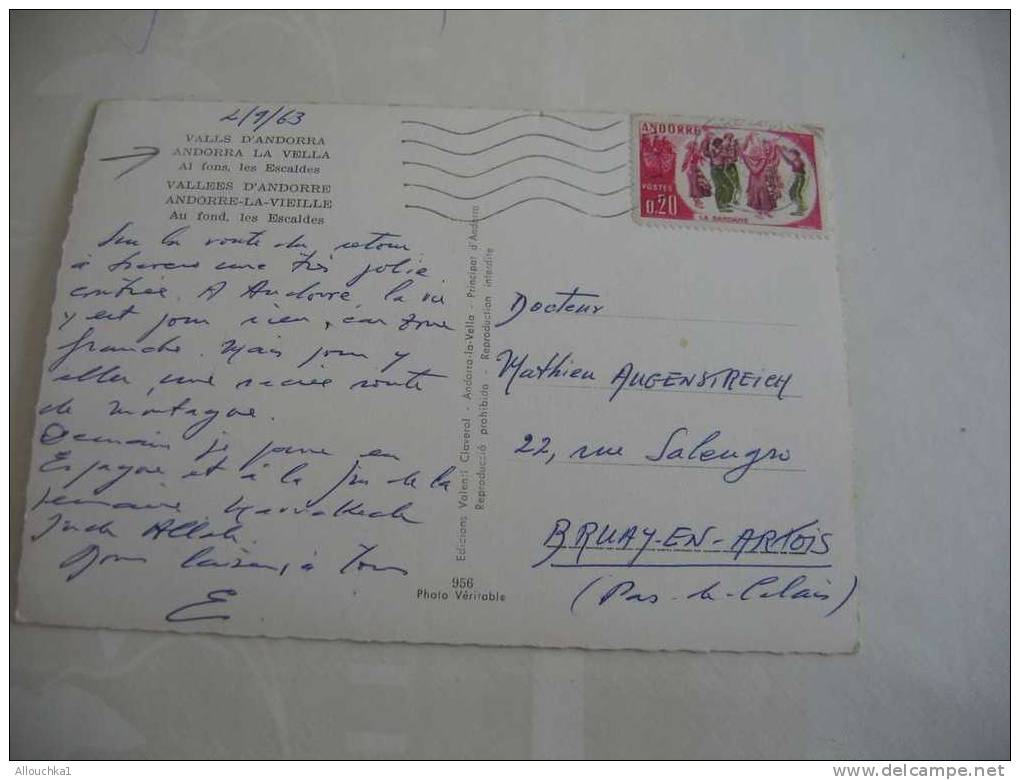 2/9/63
VALLS D'ANDORRA
ANDORRA LA VELLA
Al fons, les Escaldes
VALLEES D'ANDORRE
ANDORRE-LA-VIEILLE
Au fond, les Escaldes
Sur la route du retour
à travers une très jolie
contrée. A Andorre, la vie
y est pour rien, car zone
franche. Mais pour y
aller, une sacrée route
de montagne.
Demain je passe en
Espagne et à la fin de la
semaine Marrakech
Inch Allah.
Bons baisers à tous
E
Edicions Valentí Claverol - Andorra-la-Vella - Principat d'Andorra
Reproducció prohibida - Reproduction interdite
956
Photo Véritable
ANDORRE
POSTES
0,20
LA SARDANE
Docteur
Mathieu AUGENSTREICH
22, rue Salengro
BRUAY-EN-ARTOIS
(Pas-de-Calais)
Allouchka1